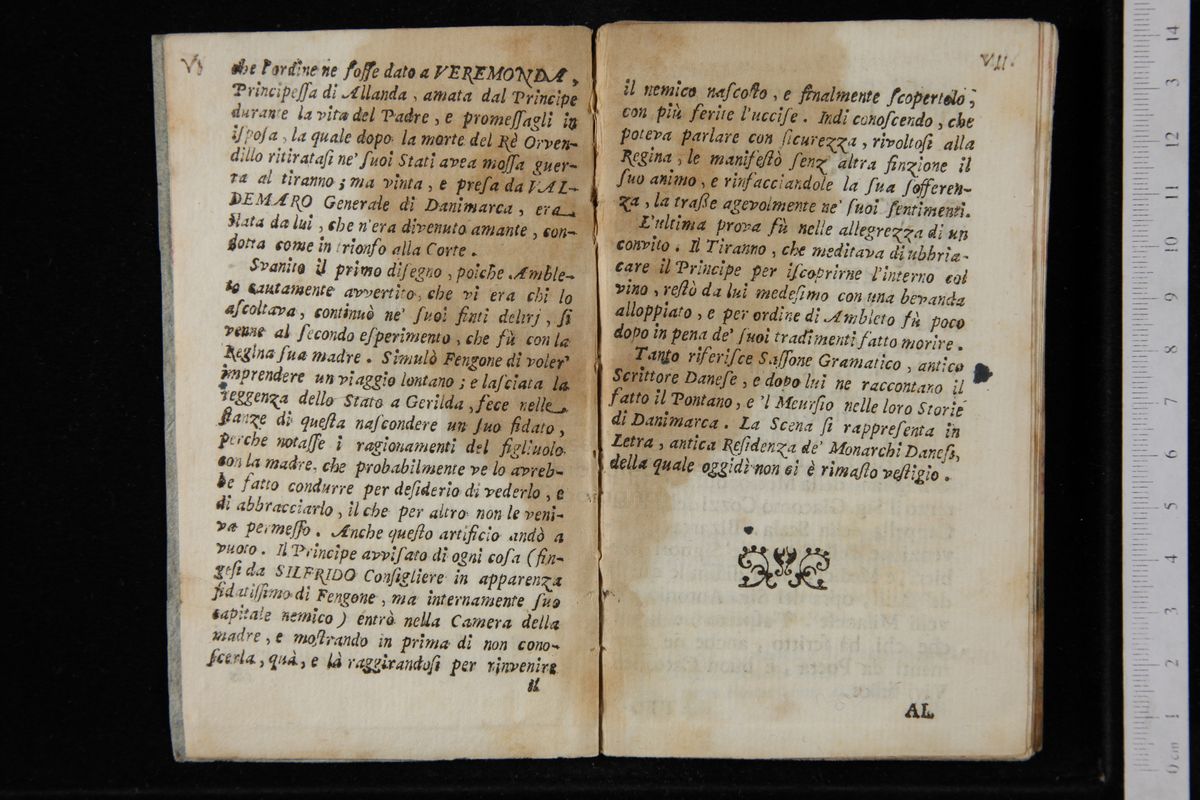 VI
che l'ordine ne fosse dato a VEREMONDA,
Principessa di Allanda, amata dal Principe
durante la vita del Padre, e promessagli in
isposa, la quale dopo la morte del Rè Orven-
dillo ritiratasi ne' suoi Stati avea mossa guer-
ra al tiranno; ma vinta, e presa da VAL-
DEMARO Generale di Danimarca, era
stata da lui, che n'era divenuto amante, con-
dotta come in trionfo alla Corte.
Svanito il primo disegno, poiche Amble-
to cautamente avvertito, che vi era chi lo
ascoltava, continuò ne' suoi finti delirj, si
venne al secondo esperimento, che fù con la
Regina sua madre. Simulò Fengone di voler'
imprendere un viaggio lontano; e lasciata la
reggenza dello Stato a Gerilda, fece nelle
stanze di questa nascondere un suo fidato,
perche notasse i ragionamenti del figliuolo
con la madre, che probabilmente ve lo avreb-
be fatto condurre per desiderio di vederlo, e
di abbracciarlo, il che per altro non le veni-
va permesso. Anche questo artificio andò a
vuoto. Il Principe avvisato di ogni cosa (fin-
gesi da SILFRIDO Consigliere in apparenza
fidatissimo di Fengone, ma internamente suo
capitale nemico) entrò nella Camera della
madre, e mostrando in prima di non cono-
scerla, quà, e là raggirandosi per rinvenire
il
VII
il nemico nascosto, e finalmente scopertolo,
con più ferite l'uccise. Indi conoscendo, che
poteva parlare con sicurezza, rivoltosi alla
Regina, le manifestò senz altra finzione il
suo animo, e rinfacciandole la sua sofferen-
za, la trasse agevolmente ne' suoi sentimenti.
L'ultima prova fù nelle allegrezza di un
convito. Il Tiranno, che meditava di ubbria-
care il Principe per iscoprirne l'interno col
vino, restò da lui medesimo con una bevanda
alloppiato, e per ordine di Ambleto fù poco
dopo in pena de' suoi tradimenti fatto morire.
Tanto riferisce Sassone Gramatico, antico
Scrittore Danese, e dopo lui ne raccontano il
fatto il Pontano, e 'l Meursio nelle loro Storie
di Danimarca. La Scena si rappresenta in
Letra, antica Residenza de' Monarchi Danesi,
della quale oggidì non ci è rimasto vestigio.
AL
0 cm 1 2 3 4 5 6 7 8 9 10 11 12 13 14